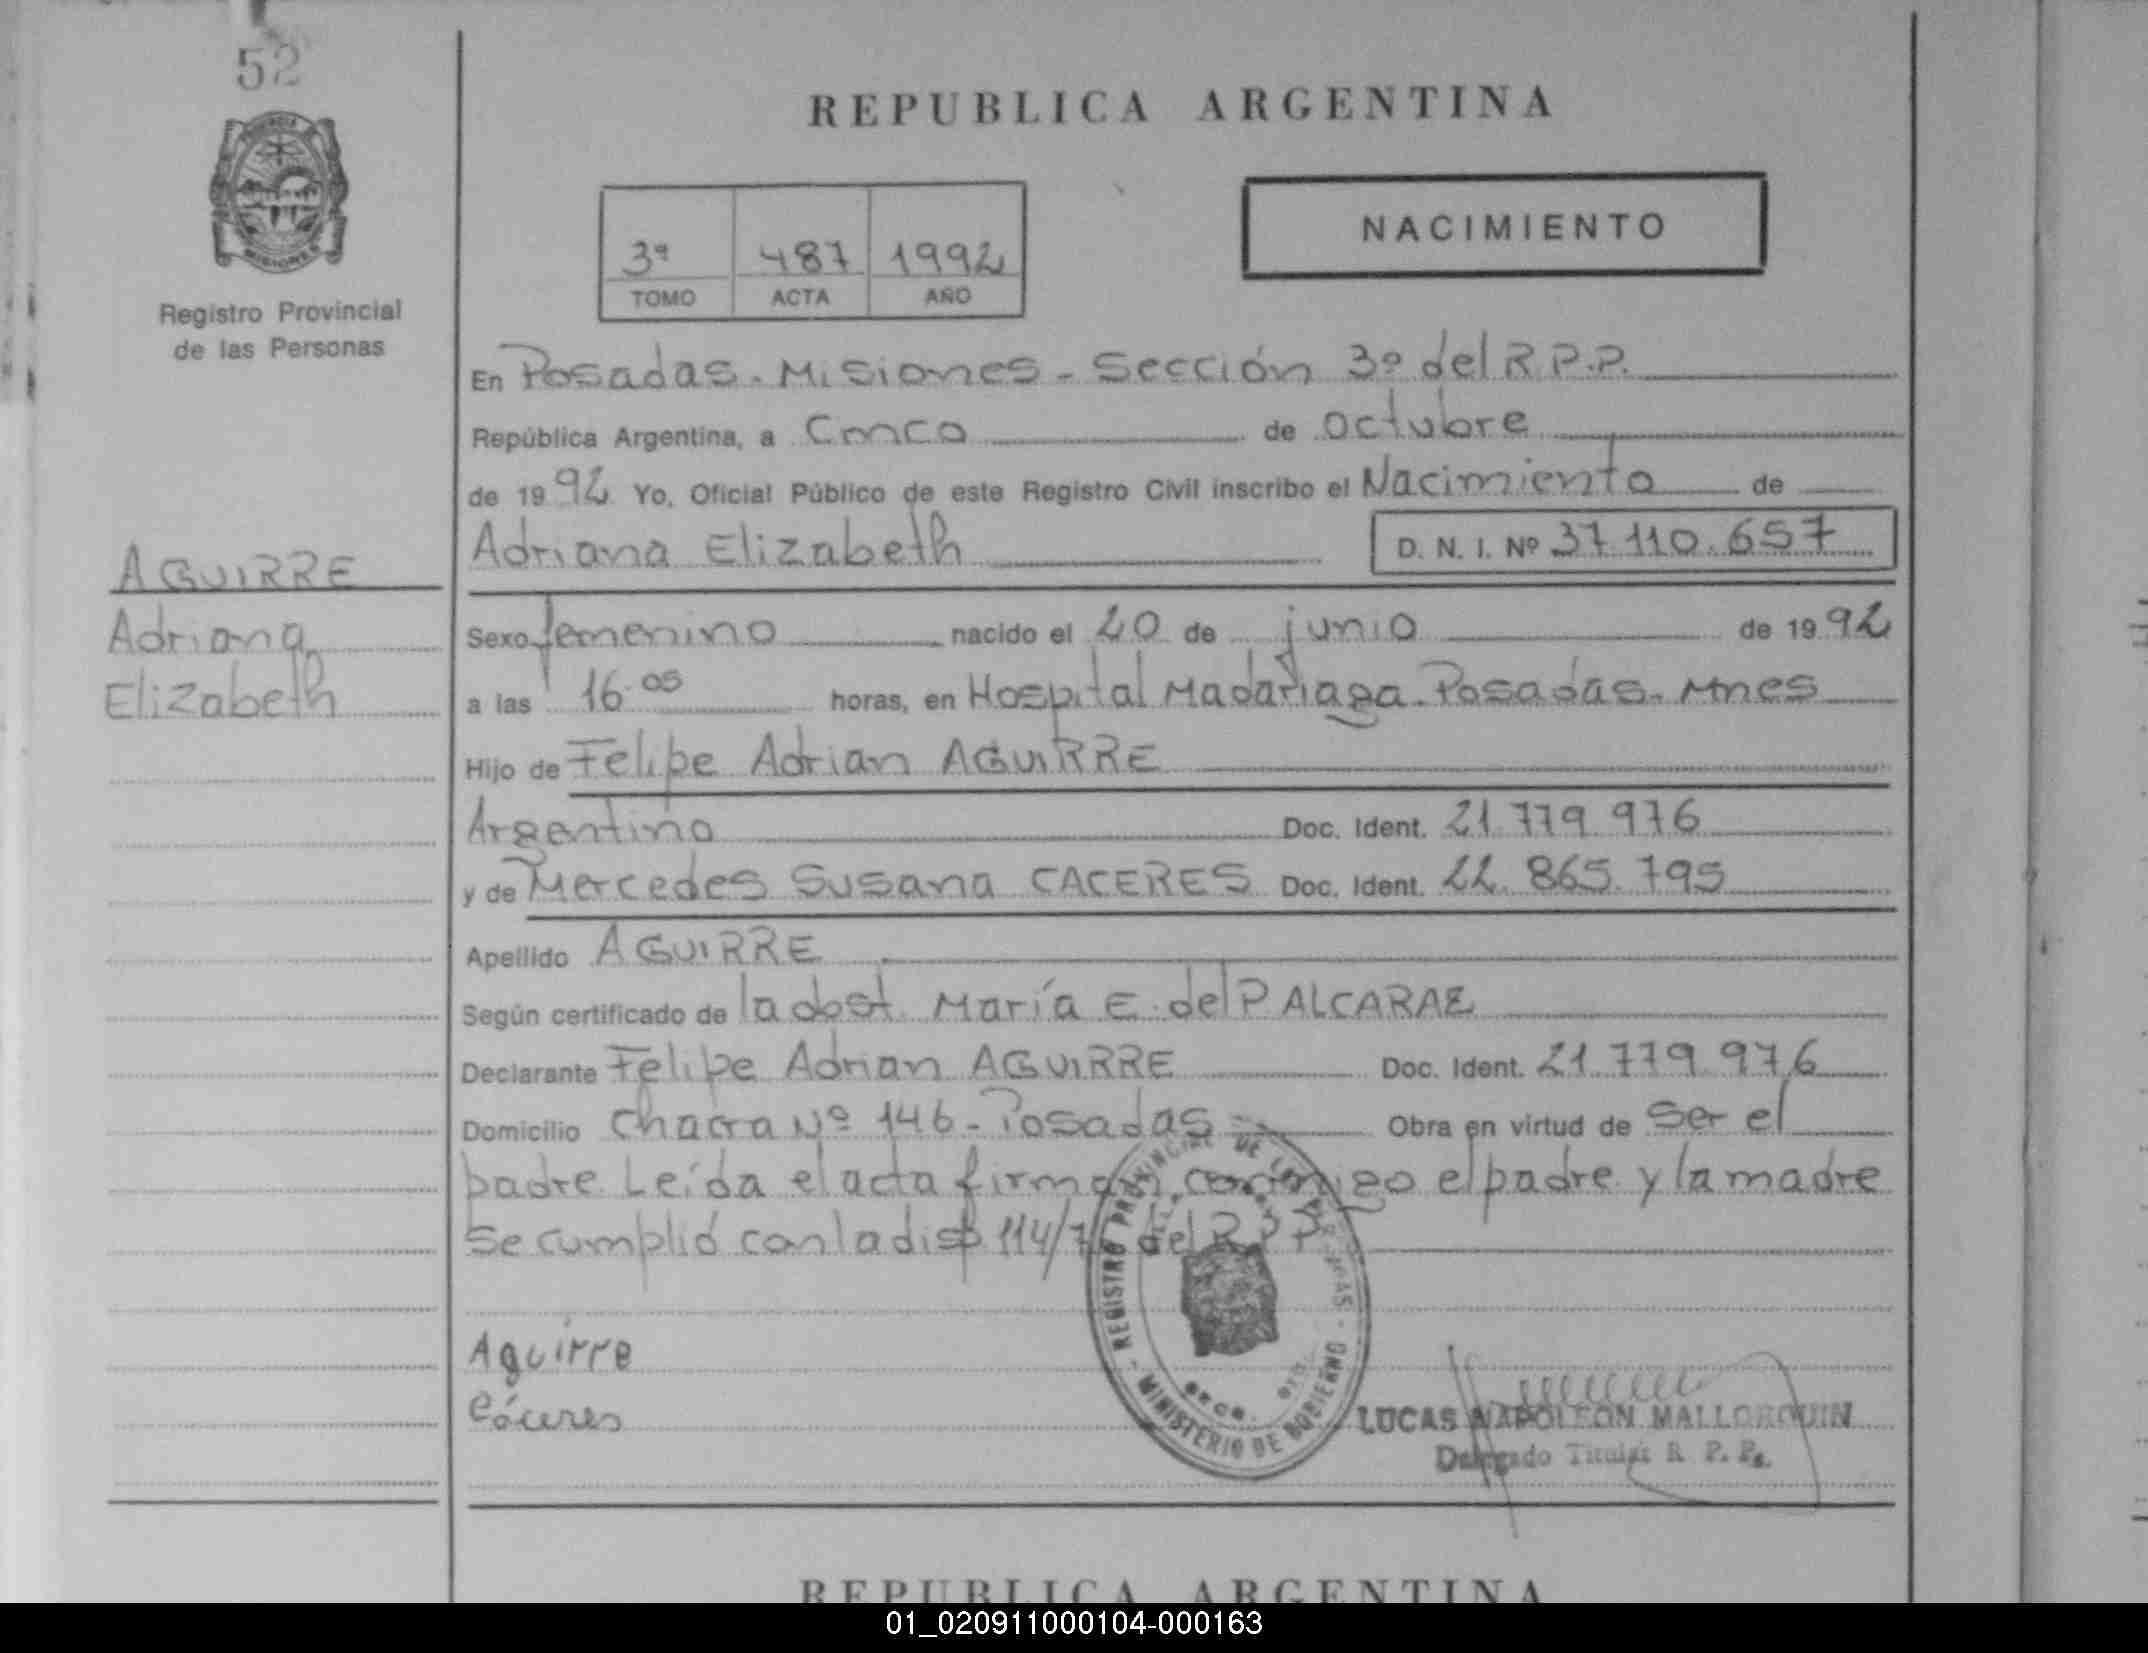 52
REPUBLICA ARGENTINA
MISIONES
Registro Provincial
de las Personas
3ª 487 1992
TOMO ACTA AÑO
NACIMIENTO
En Posadas - Misiones - Sección 3º del R.P.P.
República Argentina, a Cinco de octubre
de 1992 Yo, Oficial Público de este Registro Civil inscribo el Nacimiento de
Adriana Elizabeth D. N. I. Nº 37.110.657
AGUIRRE
Adriana
Elizabeth
Sexo femenino nacido el 20 de junio de 1992
a las 16.05 horas, en Hospital Madariaga - Posadas - Mnes
Hijo de Felipe Adrian AGUIRRE
Argentino Doc. Ident. 21.779.976
y de Mercedes Susana CACERES Doc. Ident. 22.865.795
Apellido AGUIRRE
Según certificado de la obst. María E. del P ALCARAZ
Declarante Felipe Adrian AGUIRRE Doc. Ident. 21.779.976
Domicilio Chacra Nº 146 - Posadas - Obra en virtud de Ser el
padre. Leída el acta firman conmigo el padre y la madre
Se cumplió con la disp. 114/ del R.P.P.
Aguirre
Cáceres
REGISTRO PROVINCIAL DE LAS PERSONAS - MINISTERIO DE GOBIERNO
LUCAS NAPOLEON MALLORQUIN
Delegado Titular R. P. Ps.
REPUBLICA ARGENTINA
01_020911000104-000163